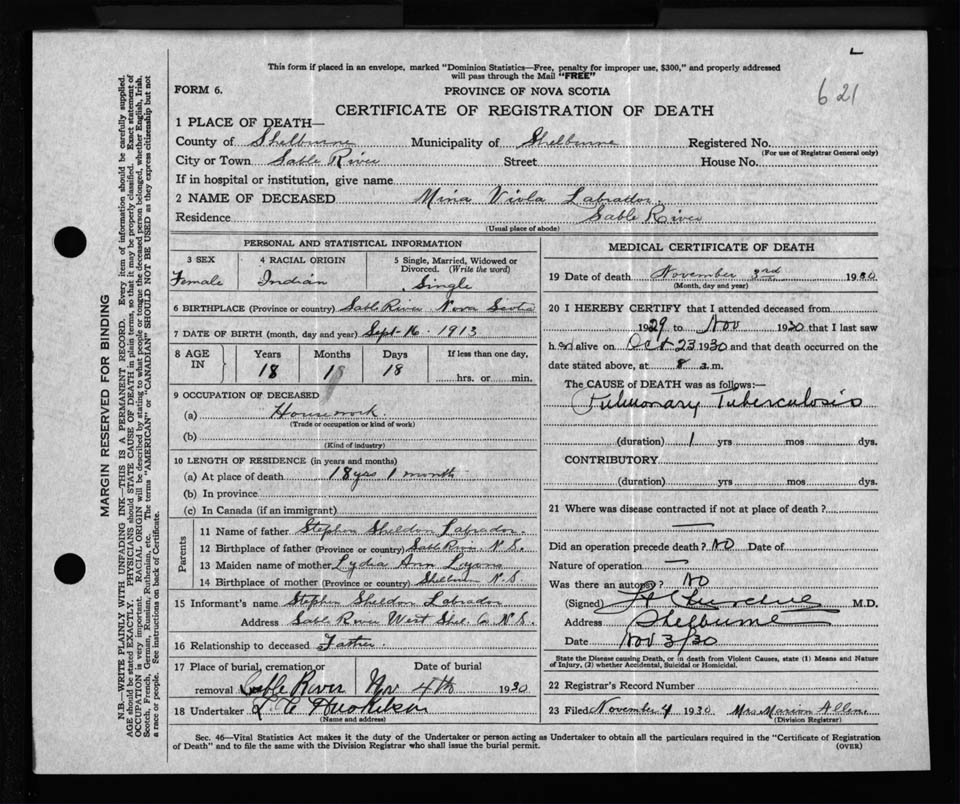 This form if placed in an envelope, marked "Dominion Statistics—Free, penalty for improper use, $300," and properly addressed
will pass through the Mail "FREE"
621
FORM 6. PROVINCE OF NOVA SCOTIA
CERTIFICATE OF REGISTRATION OF DEATH
1 PLACE OF DEATH—
County of Shelburne Municipality of Shelburne Registered No.
(For use of Registrar General only)
City or Town Sable River Street House No.
If in hospital or institution, give name
2 NAME OF DECEASED Mina Viola Labrador
Residence Sable River
(Usual place of abode)
PERSONAL AND STATISTICAL INFORMATION
3 SEX 4 RACIAL ORIGIN 5 Single, Married, Widowed or Divorced. (Write the word)
Female Indian Single
6 BIRTHPLACE (Province or country) Sable River Nova Scotia
7 DATE OF BIRTH (month, day and year) Sept 16 1913
8 AGE IN Years Months Days If less than one day,
18 1 18 hrs. or min.
9 OCCUPATION OF DECEASED
(a) Housework
(Trade or occupation or kind of work)
(b)
(Kind of industry)
10 LENGTH OF RESIDENCE (in years and months)
(a) At place of death 18 yrs 1 month
(b) In province
(c) In Canada (if an immigrant)
Parents
11 Name of father Stephen Sheldon Labrador
12 Birthplace of father (Province or country) Sable River N.S.
13 Maiden name of mother Lydia Ann
14 Birthplace of mother (Province or country) Shelburne N.S.
15 Informant's name Stephen Sheldon Labrador
Address Sable River West Shel. Co N.S.
16 Relationship to deceased Father.
17 Place of burial, cremation or removal Sable River Date of burial Nov 4th 1930
18 Undertaker
(Name and address)
MEDICAL CERTIFICATE OF DEATH
19 Date of death November 3rd 1930
(Month, day and year)
20 I HEREBY CERTIFY that I attended deceased from
1929 to Nov 1930 that I last saw
h er alive on Oct 23 1930 and that death occurred on the
date stated above, at 8 a.m.
The CAUSE of DEATH was as follows:—
Pulmonary Tuberculosis
(duration) 1 yrs mos dys.
CONTRIBUTORY
(duration) yrs mos dys.
21 Where was disease contracted if not at place of death?
Did an operation precede death? NO Date of
Nature of operation
Was there an autopsy? NO
(Signed) M.D.
Address Shelburne
Date Nov 3/30
State the Disease causing Death, or in death from Violent Causes, state (1) Means and Nature of Injury, (2) whether Accidental, Suicidal or Homicidal.
22 Registrar's Record Number
23 Filed November 4 1930 Mrs Marion Allen
(Division Registrar)
Sec. 46—Vital Statistics Act makes it the duty of the Undertaker or person acting as Undertaker to obtain all the particulars required in the "Certificate of Registration
of Death" and to file the same with the Division Registrar who shall issue the burial permit. (OVER)
MARGIN RESERVED FOR BINDING
N.B.—WRITE PLAINLY WITH UNFADING INK—THIS IS A PERMANENT RECORD. Every item of information should be carefully supplied.
AGE should be stated EXACTLY. PHYSICIANS should STATE CAUSE OF DEATH in plain terms, so that it may be properly classified. Exact statement of
OCCUPATION is very important. RACIAL ORIGIN will be described by stating to what people or tongue the deceased person belonged, whether English, Irish,
Scotch, French, German, Russian, Ruthenian, etc. The terms "AMERICAN" or "CANADIAN" SHOULD NOT BE USED as they express citizenship but not
a race or people. See instructions on back of Certificate.